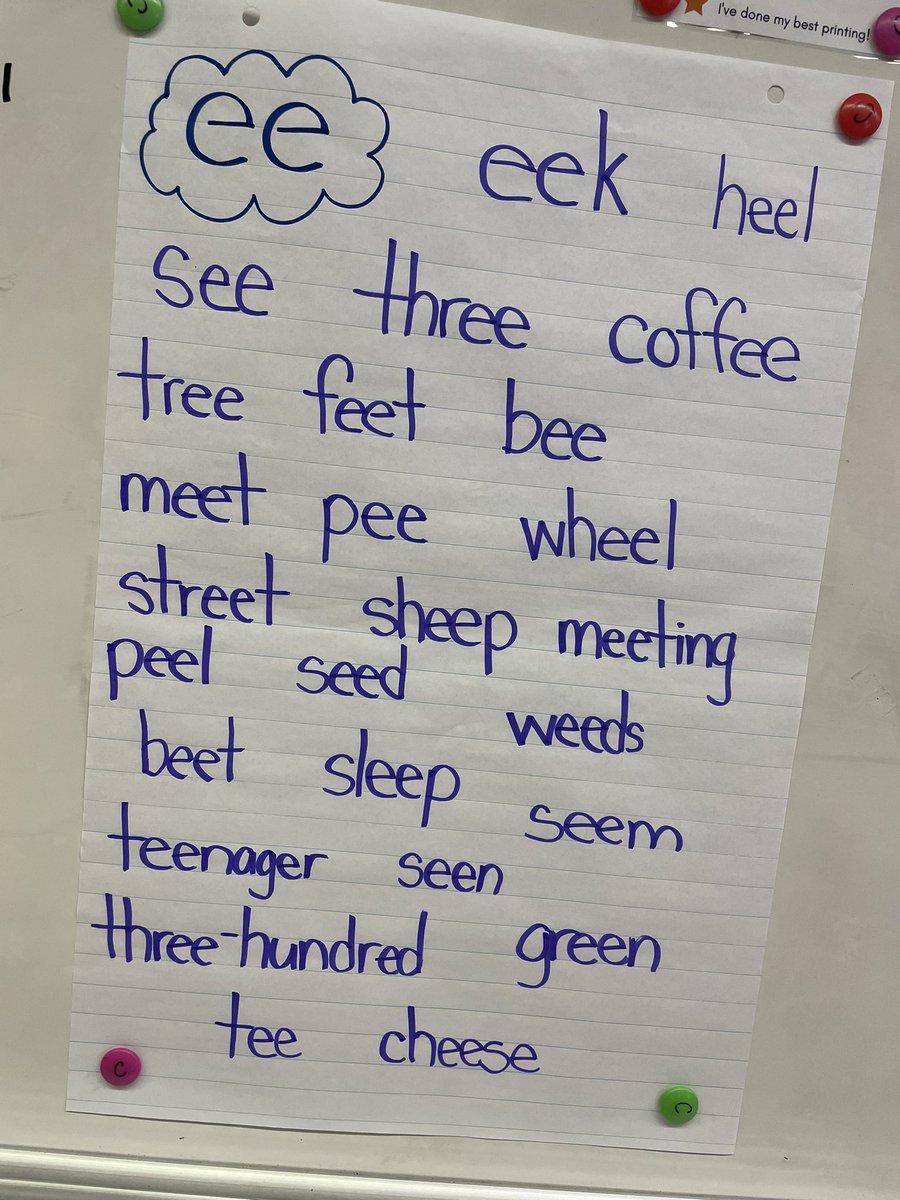 I've done my best printing!
ee eek heel
see three coffee
tree feet bee
meet pee wheel
street sheep meeting
peel seed weeds
beet sleep seem
teenager seen
three-hundred green
tee cheese
C
C